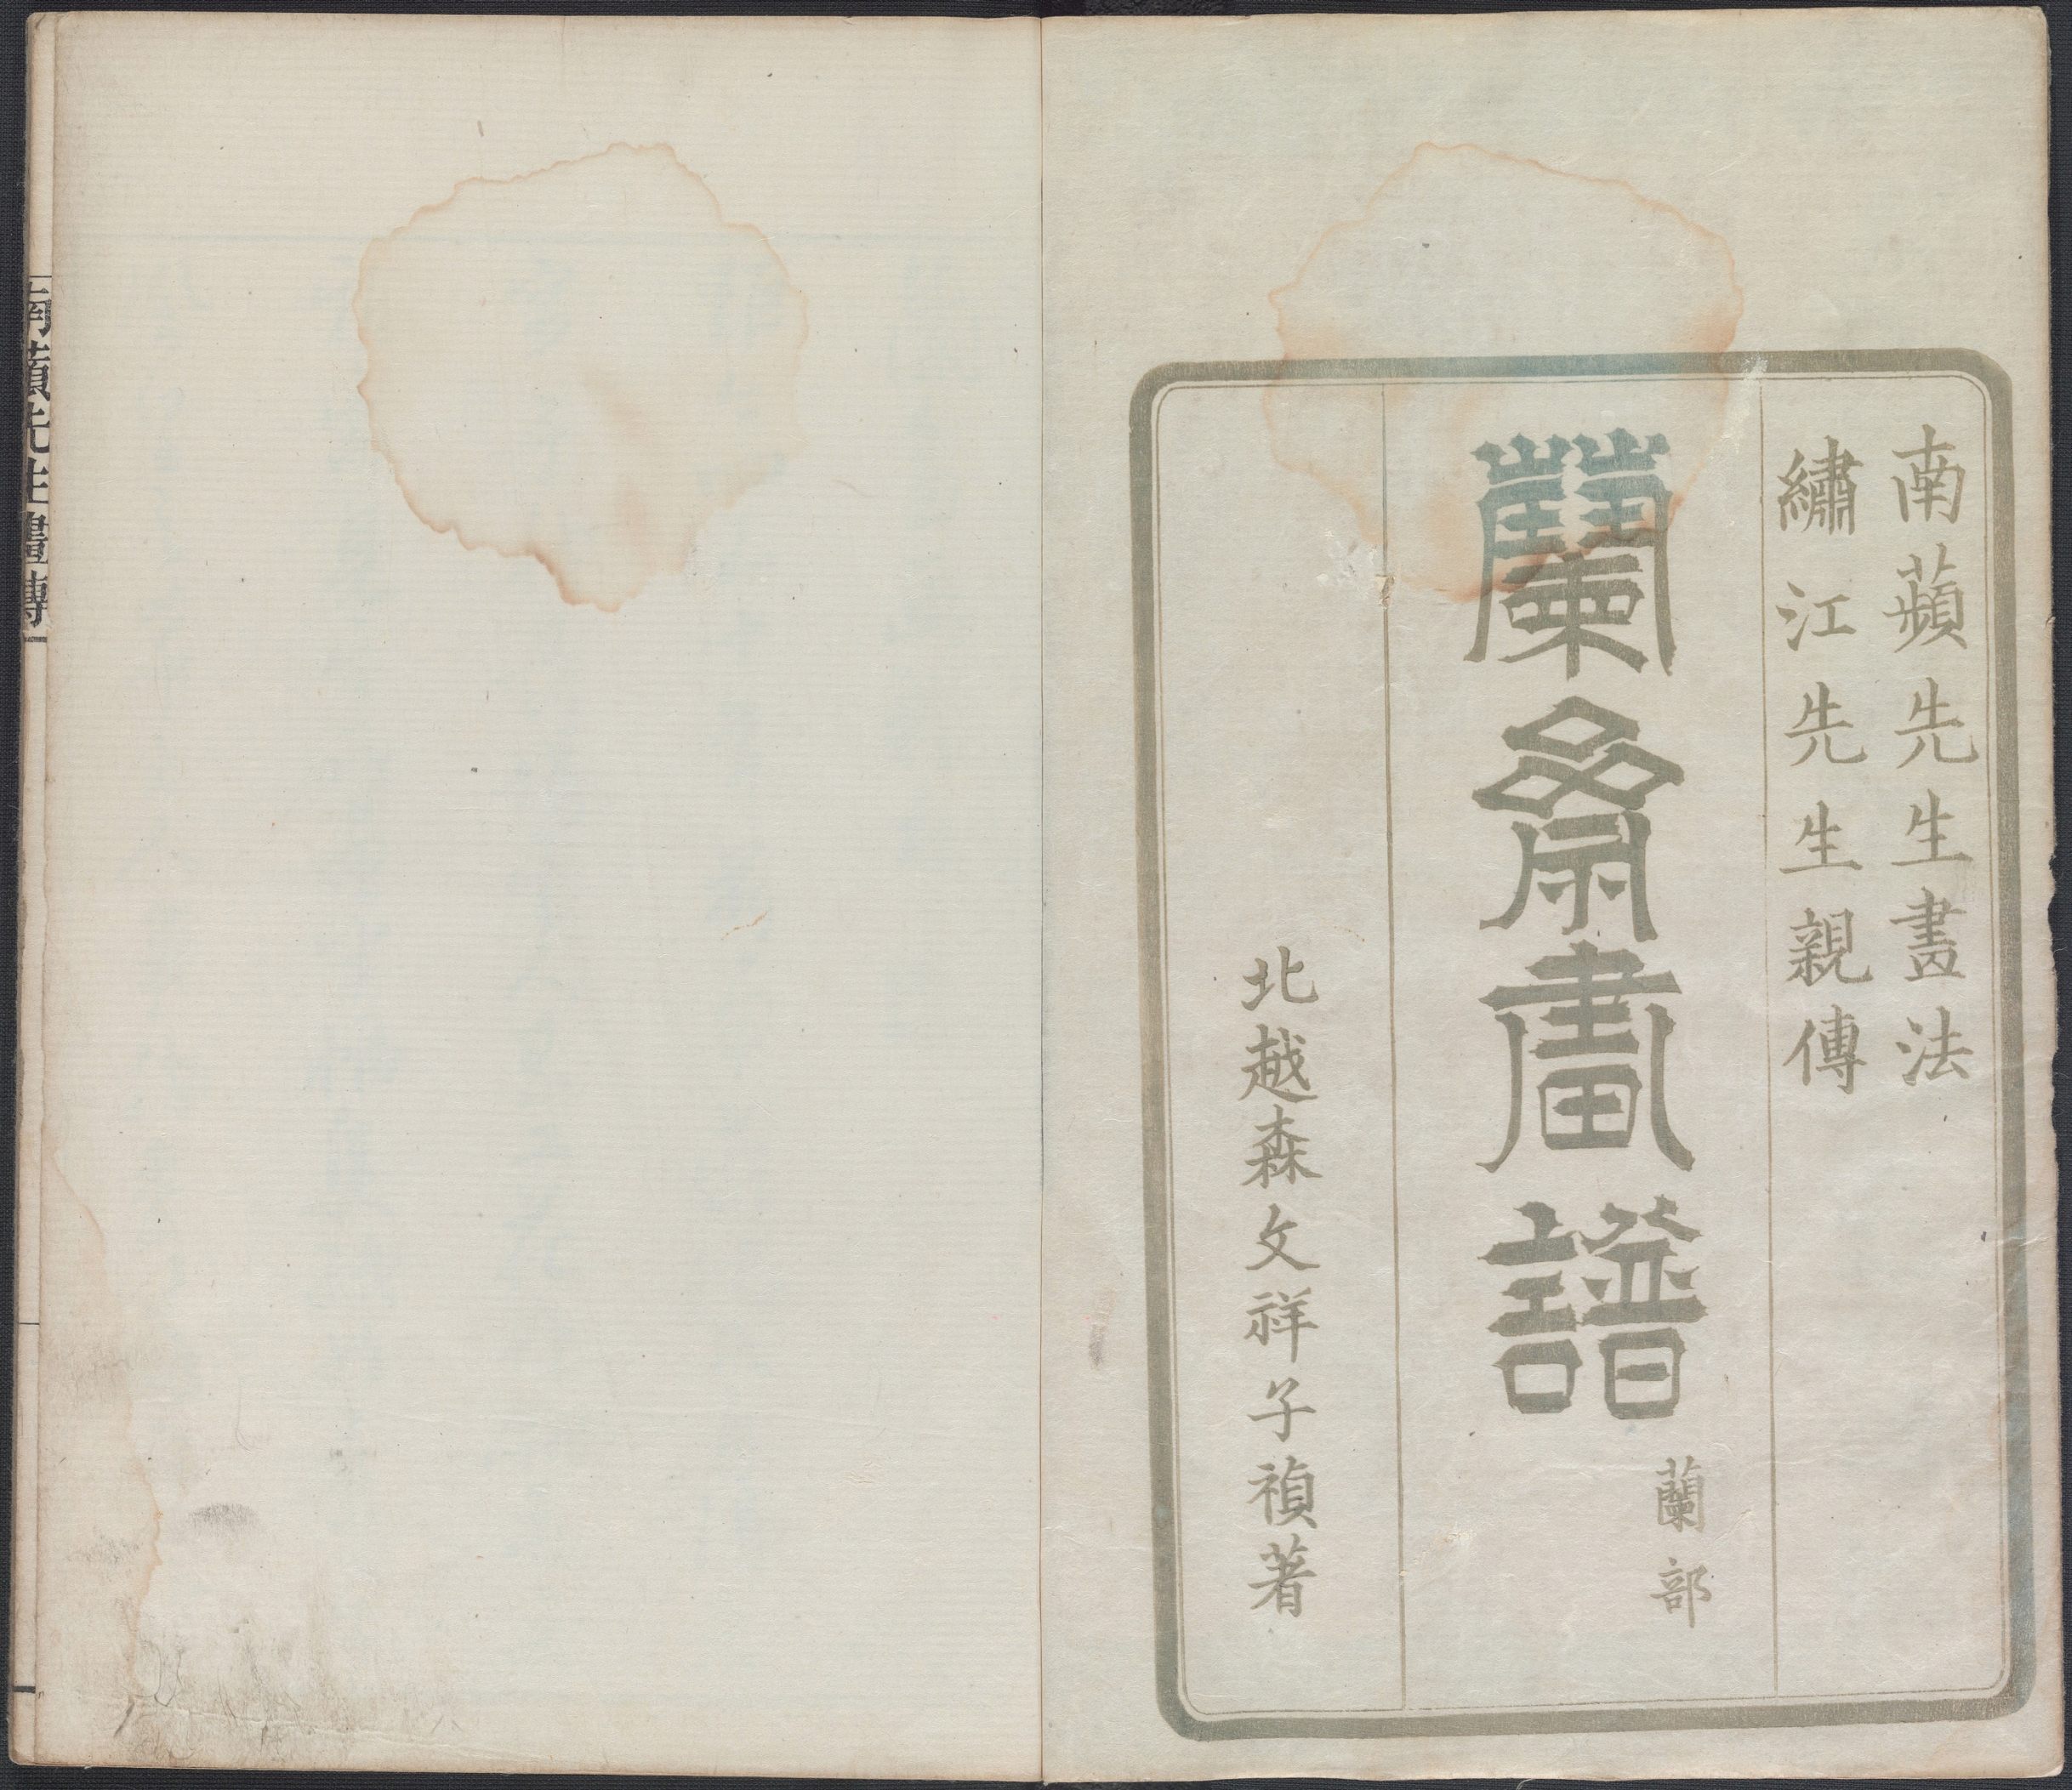 南蘋先生畫法
繡江先生親傳
蘭齋畫譜
蘭部
北越森文祥子禎著
南蘋先生畫傳